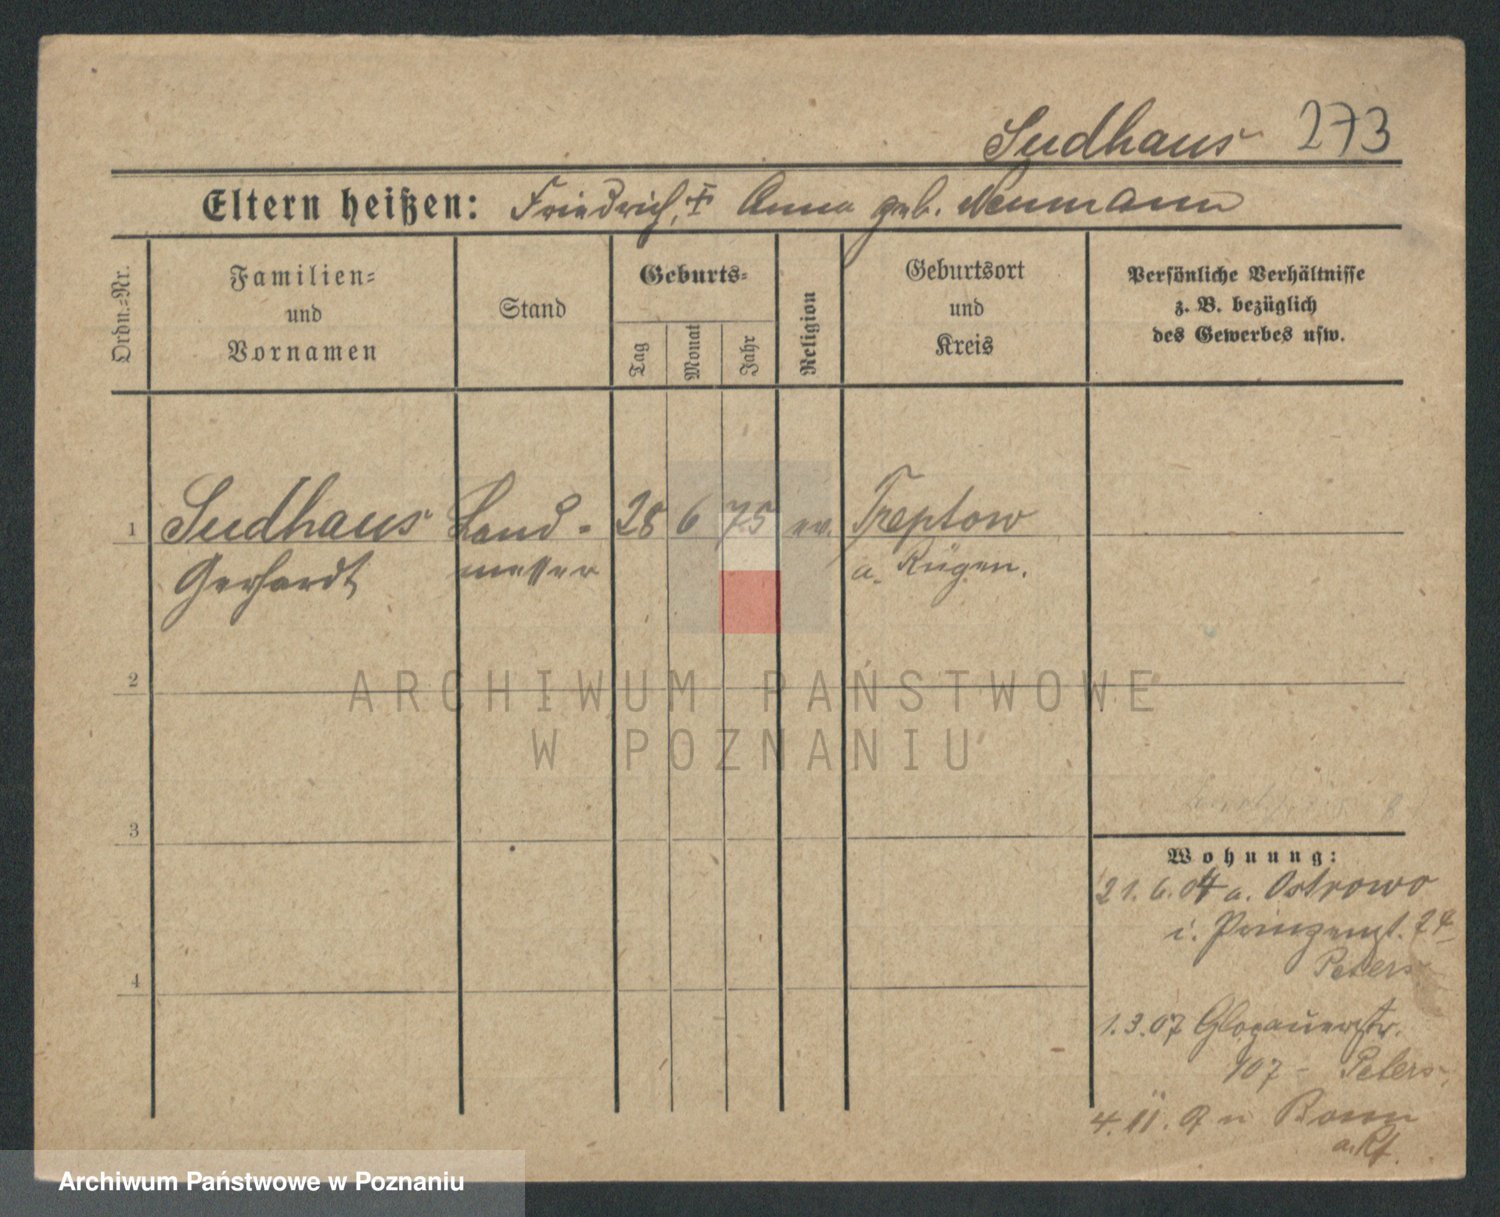 Sudhaus 273
Eltern heißen: Friedrich, † Anna geb. Neumann
Ordn.-Nr.
Familien-
und
Vornamen
Stand
Geburts-
Tag
Monat
Jahr
Religion
Geburtsort
und
Kreis
Persönliche Verhältnisse
z. B. bezüglich
des Gewerbes usw.
1 Sudhaus Land- 28 6 75 ev. Treptow
Gerhardt messer a. Rügen.
2
3
4
Wohnung:
21.6.04 a. Ostrowo
i. Prinzenst. 24
Peters
1.3.07 Glogauerstr.
107 - Peters
4.11. n Bonn
a. Rh.
ARCHIWUM PAŃSTWOWE
W POZNANIU
Archiwum Państwowe w Poznaniu